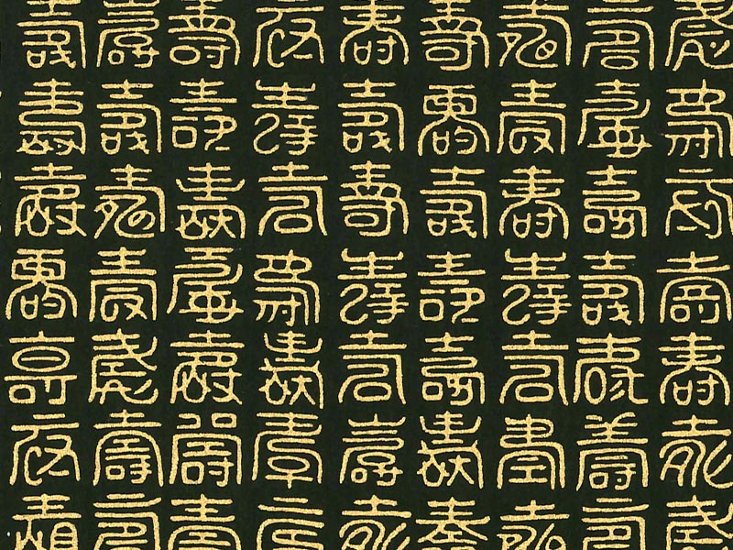 壽壽壽壽壽壽壽壽壽
壽壽壽壽壽壽壽壽壽
壽壽壽壽壽壽壽壽壽
壽壽壽壽壽壽壽壽壽
壽壽壽壽壽壽壽壽壽
壽壽壽壽壽壽壽壽壽
壽壽壽壽壽壽壽壽壽